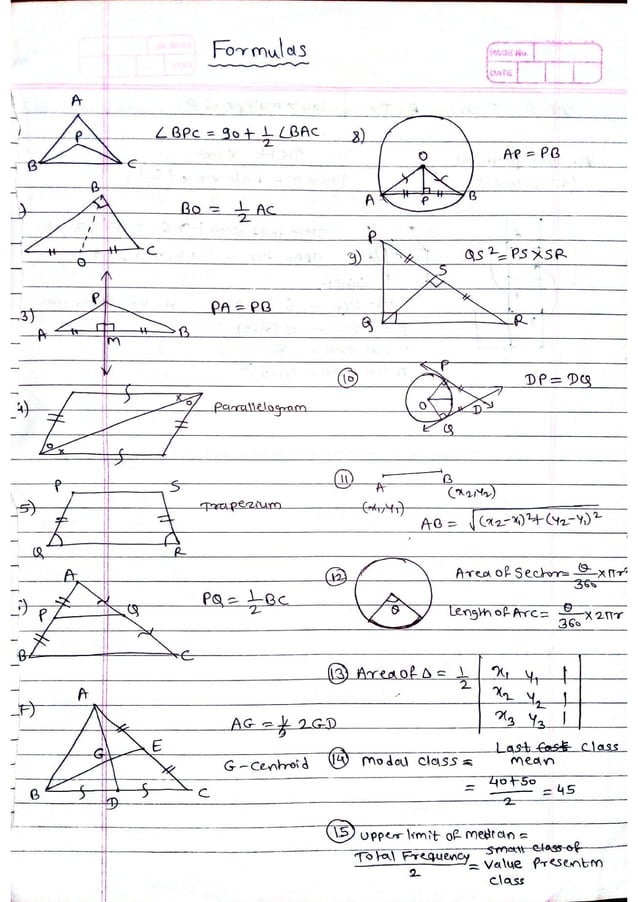 Formulas
PAGE No.
DATE
A
P
B C
∠BPC = 90 + 1/2 ∠BAC
B
O
C
BO = 1/2 AC
3)
P
A M B
PA = PB
4)
x o
o x
Parallelogram
5)
P S
Q R
Trapezium
A
P Q
B C
PQ = 1/2 BC
7)
A
G E
B D C
AG = 2GD
G-Centroid
8)
O
A P B
AP = PB
9)
P
S
Q R
QS² = PS × SR
10
P
O D
Q
DP = DQ
11
A B
(x1,y1) (x2,y2)
AB = √(x2-x1)²+(y2-y1)²
12
θ
Area of Sector = θ/360 × πr²
Length of Arc = θ/360 × 2πr
13 Area of Δ = 1/2 | x1 y1 1 |
| x2 y2 1 |
| x3 y3 1 |
14 Modal class = Last class
mean
= 40+50/2 = 45
15 Upper limit of median =
Total Frequency/2 = small class of
value present in
class